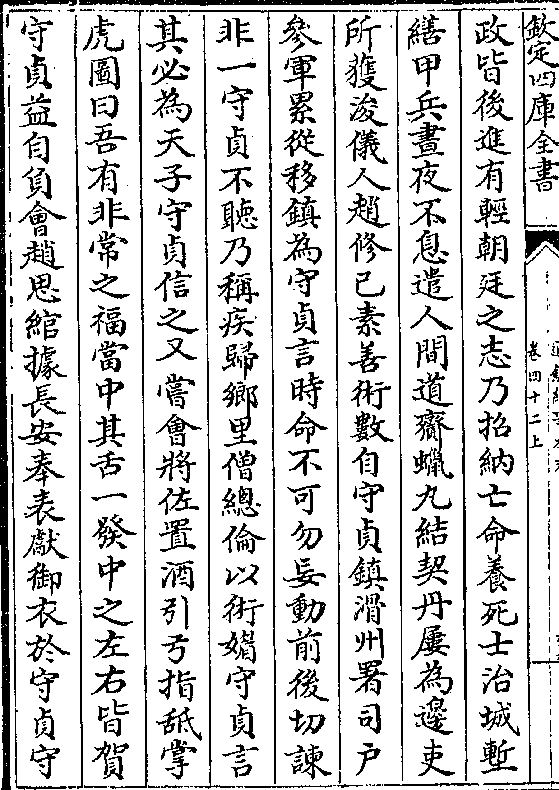 欽定四庫全書
卷四十二上
政皆後進有輕朝廷之志乃招納亡命養死士治城塹
繕甲兵晝夜不息遣人間道齎蠟丸結契丹屢為邊吏
所獲浚儀人趙修已素善術數自守貞鎮滑州署司戶
參軍累從移鎮為守貞言時命不可勿妄動前後切諫
非一守貞不聽乃稱疾歸鄉里僧總倫以術媚守貞言
其必為天子守貞信之又嘗會將佐置酒引弓指舐掌
虎圖曰吾有非常之福當中其舌一發中之左右皆賀
守貞益自負會趙思綰據長安奉表獻御衣於守貞守